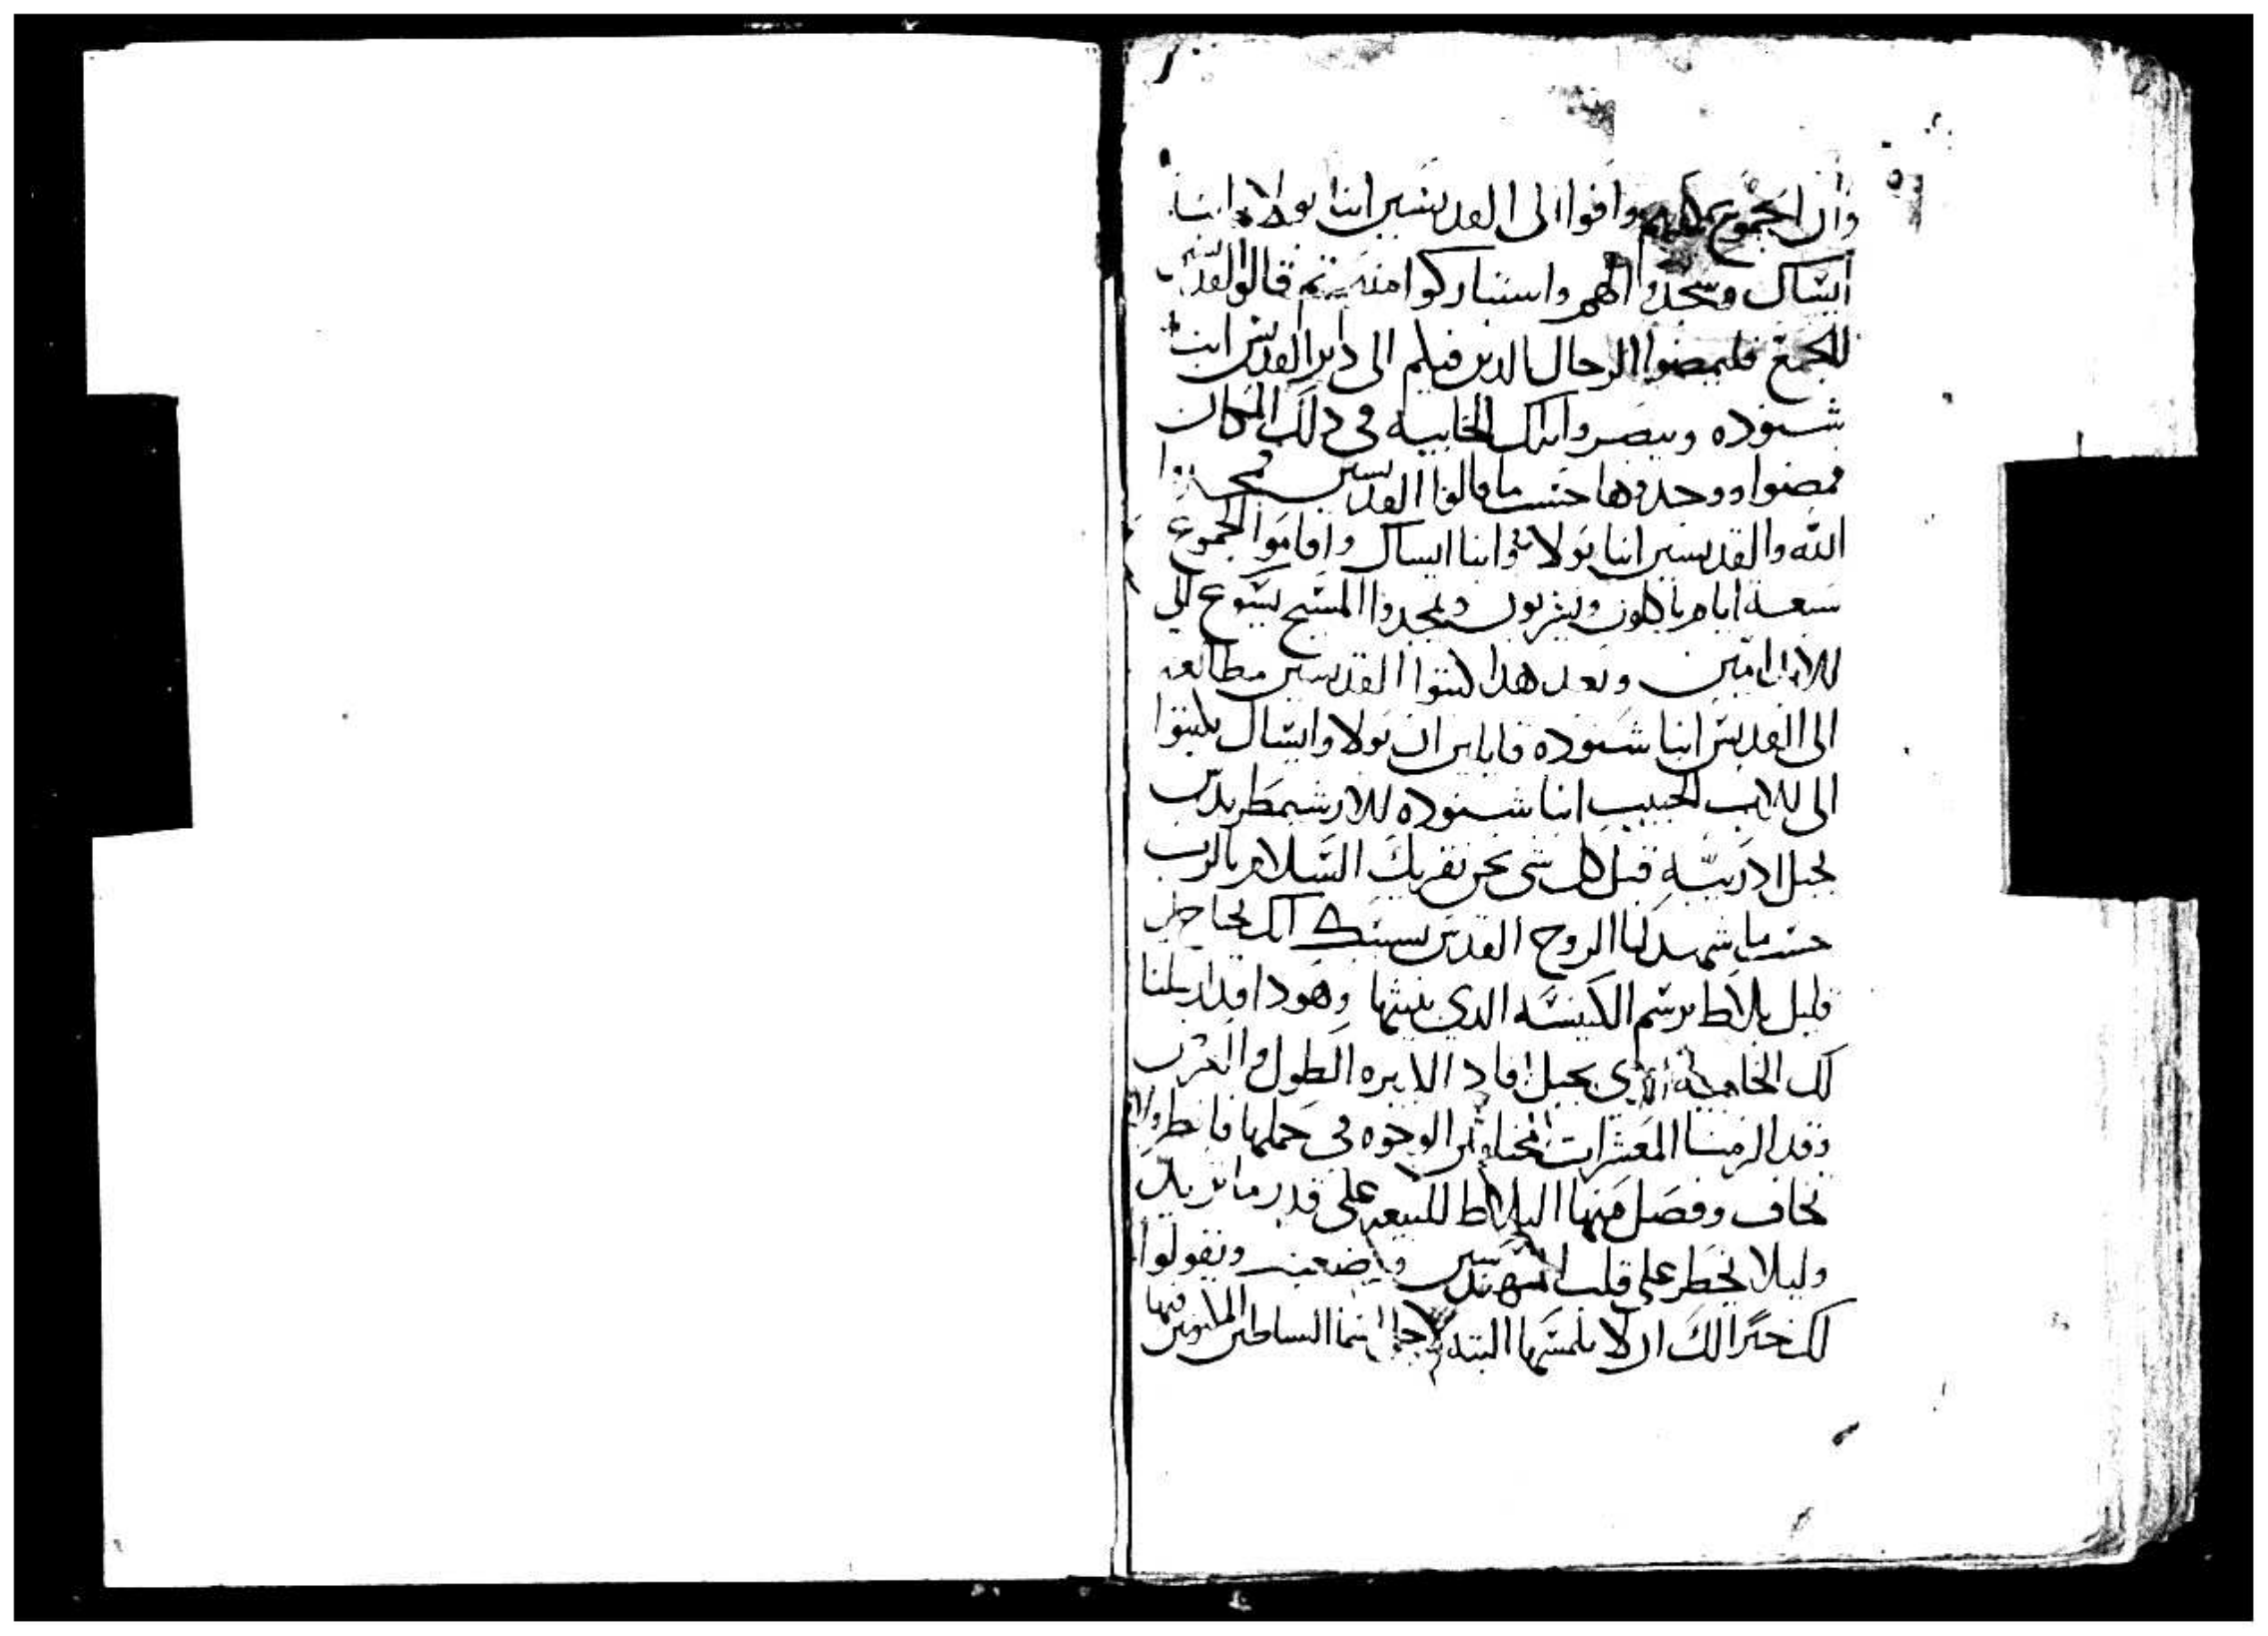 وان الجموع كلهم وافوا الى القديسين انبا بولا وانبا
ايسال وسجدوا لهم واستباركوا منهم ثم قالوا القديسين
للجمع فليمضوا الرجال الدين فيكم الى دير القديس انبا
شنوده ويبصروا تلك الخابيه في دلك المكان
فمضوا ووجدوها حسب ما قالوا القديسين فمجدوا
الله والقديسين انبا بولا وانبا ايسال واقاموا الجموع
سبعة ايام ياكلون ويشربون ويمجدوا المسيح يسوع الى
الابد امين وبعد هدا كتبوا القديسين مطالعه
الى القديس انبا شنوده قايلين ان بولا وايسال يكتبوا
الى الاب الحبيب انبا شنوده الارشمطريدس
بجبل ادريبه قبل كل شي نحن نقريك السلام بالرب
حسب ما شهد لنا الروح القدس بسببك انك تحتاج الى
قليل بلاط برسم الكنيسه الدي بنيتها وهودا قد ارسلنا
لك الخاميه الدي بجبل افاد الابره الطول والعرض
وقد الزمنا المعشرات في حملها فانظر ولا
تخاف وفصل منها البلاط للبيعه على قدر ما تريد
وليلا يخطر على قلب المهندسين ويقولوا
لك خيرا لك ان لا تلمسها البتة لاجل السلاطين